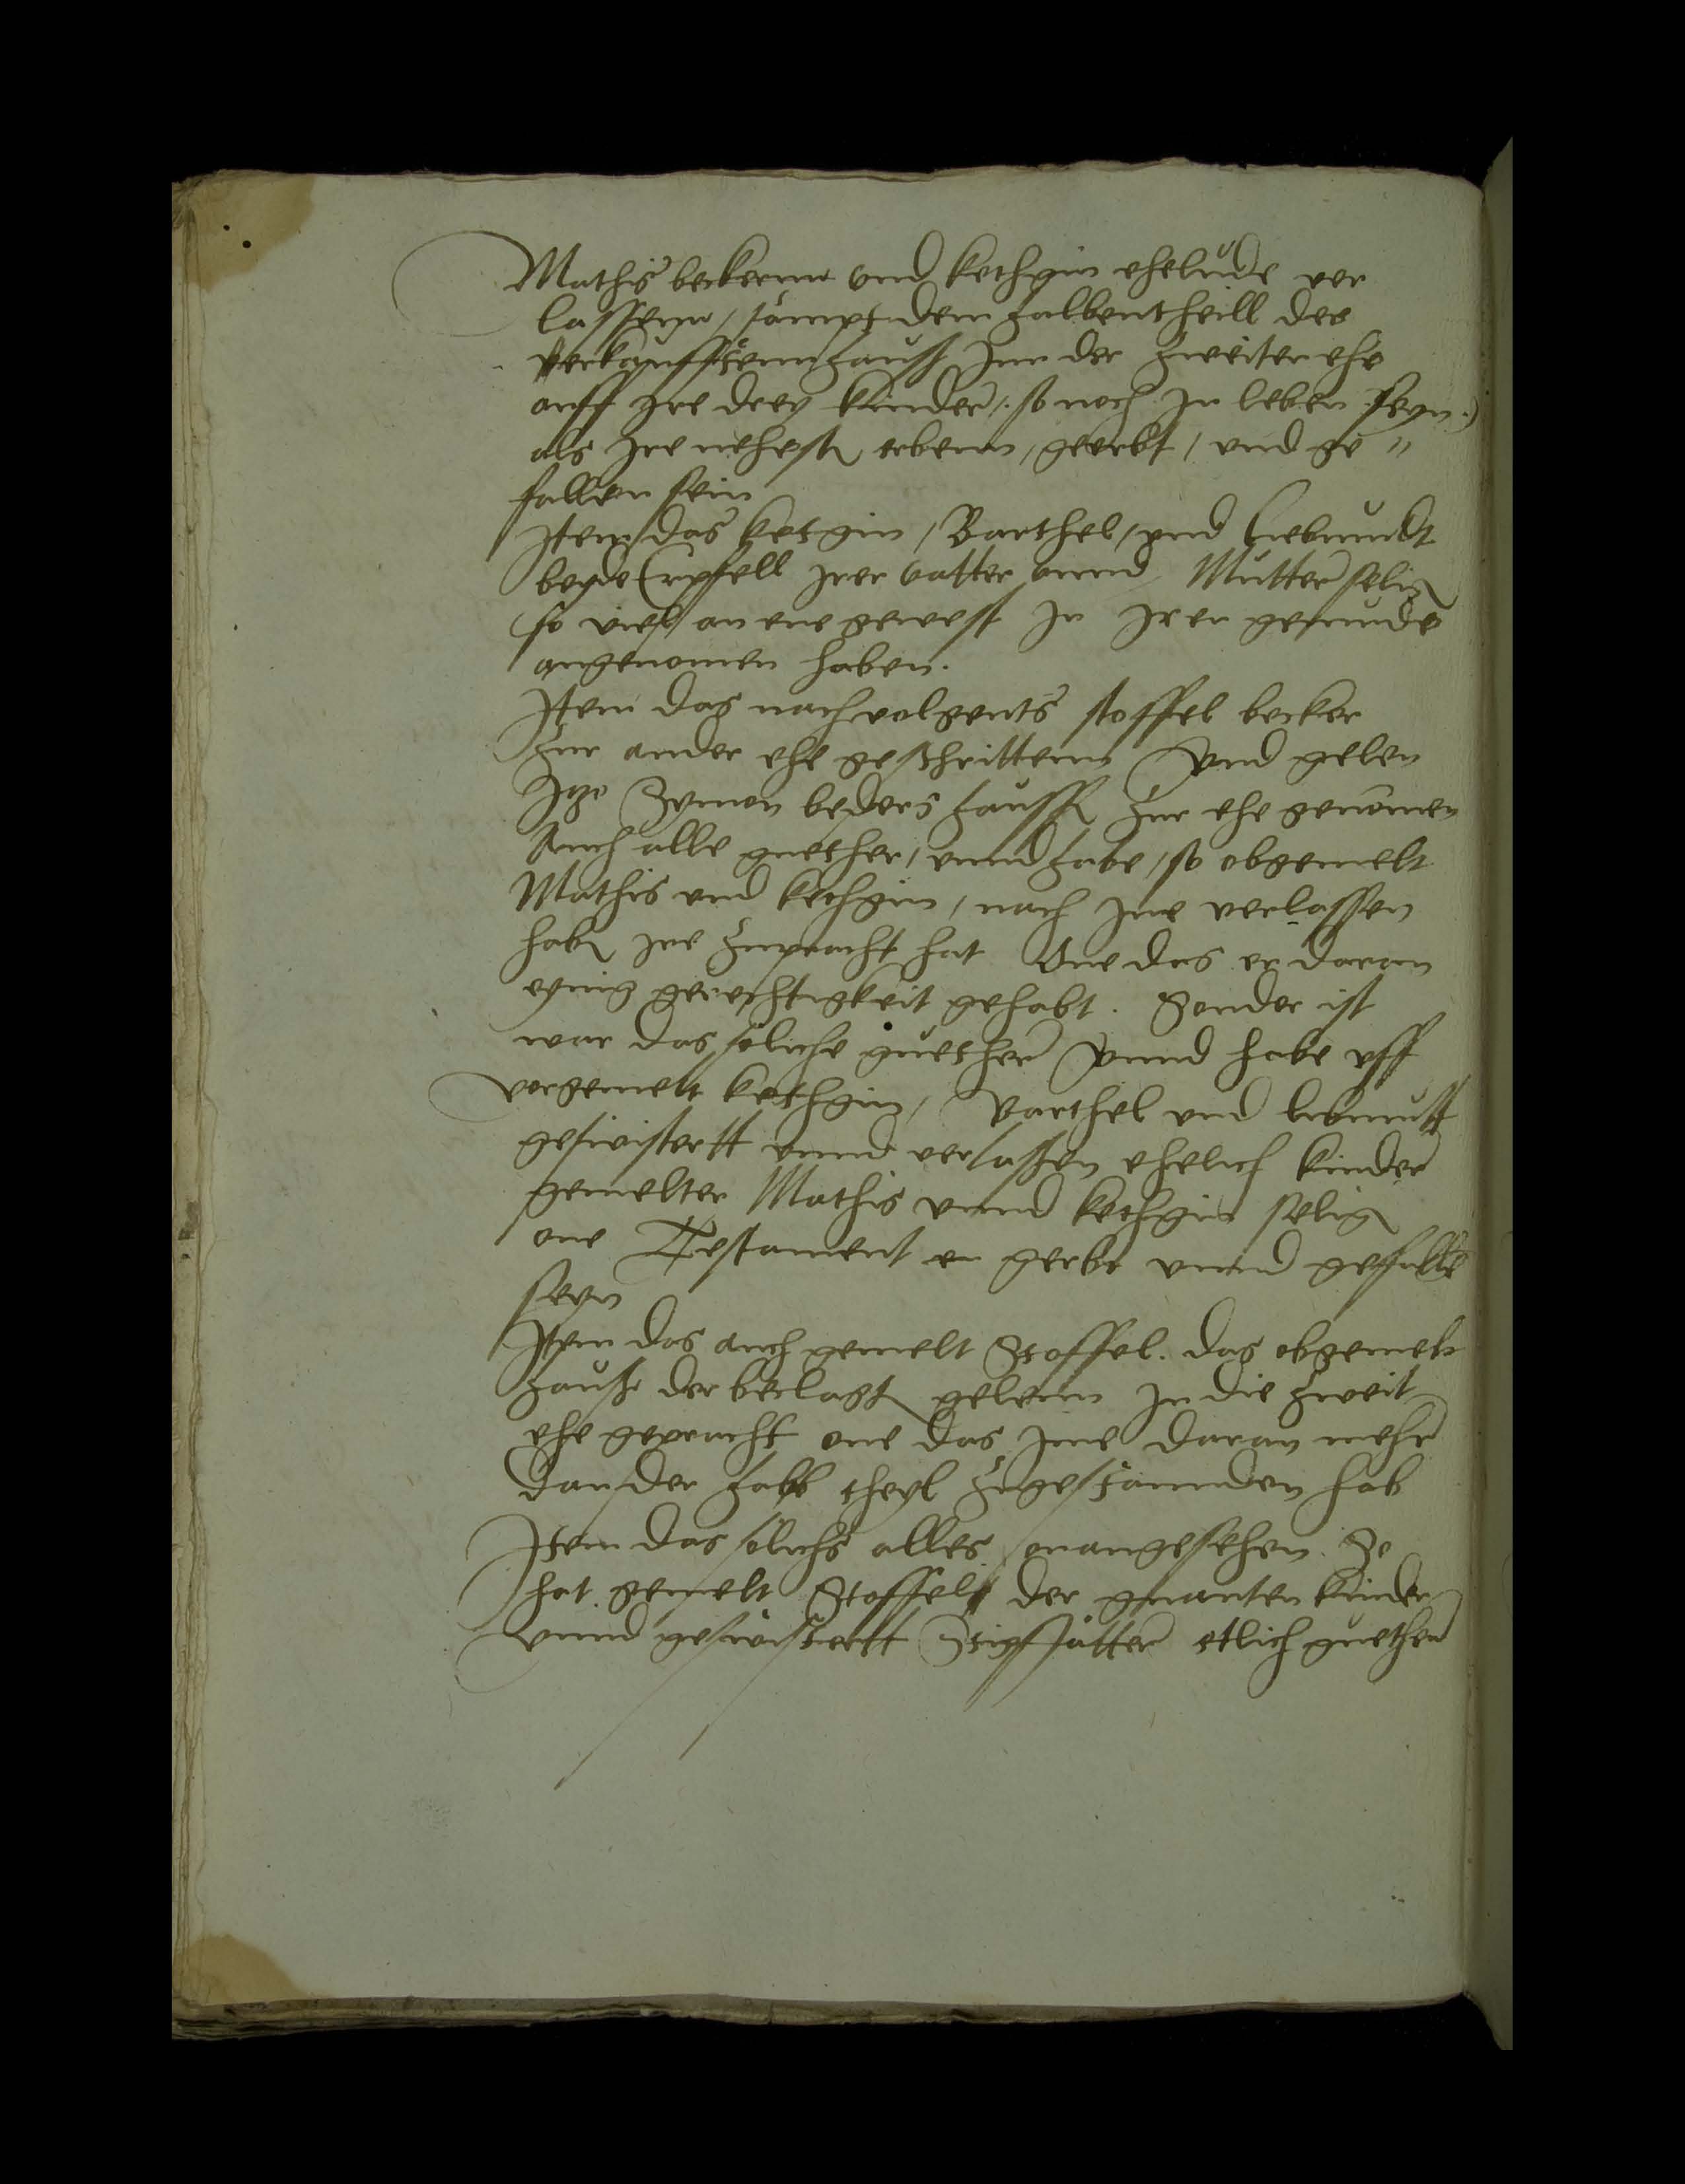 Mathis beckernn vnd kethgin ehelude ver
lassenn, sampt dem halbentheill des
verkaufftenn hauss Inn der zweiter ehe
auff ire drey kinder /: so noch in leben seyn :/
als ire nehest erbenn, geerbt, vnd ge"
fallen sein
Item das ketgin, Barthel, vnd
beyde Erpfell irer vatter vnnd Mutter selig
so viel an ene gewest in iren gesunde
angenomen haben.
Item das nachvolgents stoffel becker
zur ander ehe geschrittenn vnd gelen
Itzo Symon beders hausf zur ehe genomen
Auch alle guether, vnnd habe, so obgemelt
Mathis vnd kethgin, nach ine verlassen
hab ire zupracht hat One das er daran
eynig gerechtigkeit gehabt. Sonder ist
war das soliche guether vnnd habe vff
vorgemelt kethgin, Barthel vnd
geswistertt vnnd verlassen ehelich kinder
gemelter Mathis vnnd kethgin selig
one Testament er gerbt vnnd gefalle
seyn
Item das auch gemelt Stoffel. das obgemelt
hauss der beclagt gelenn In die zweit
ehe gepracht one das ime daran mehr
dan der halb theyl zugestannden hab
Item das solichs alles onangesehen. So
hat gemelt Stoffel der gnanten kinder
vnnd geswistertt Stiffatter etlich guether